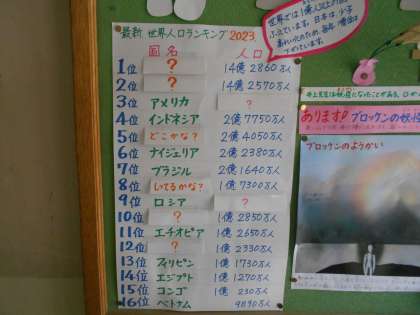 最新 世界人口ランキング2023
国名 人口
1位 ? 14億2860万人
2位 ? 14億2570万人
3位 アメリカ ?
4位 インドネシア 2億7750万人
5位 どこかな? 2億4050万人
6位 ナイジェリア 2億2380万人
7位 ブラジル 2億1640万人
8位 しってるかな? 1億7300万人
9位 ロシア ?
10位 ? 1億2850万人
11位 エチオピア 1億2650万人
12位 ? 1億2330万人
13位 フィリピン 1億1730万人
14位 エジプト 1億1270万人
15位 コンゴ 1億230万人
16位 ベトナム 9890万人
世界では1億人以上の国が
ふえています。日本は少子
高れい化のため、毎年
います。
あります!! ブロッケンの妖怪
ブロッケンのようかい